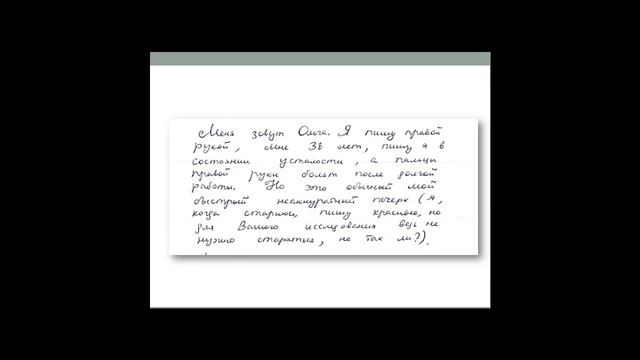 Меня зовут Ольга. Я пишу правой
рукой, мне 36 лет, пишу я в
состоянии усталости, а пальцы
правой руки болят после долгой
работы. Но это обычный мой
быстрый неаккуратный почерк (я,
когда стараюсь, пишу красивее, но
для Вашего исследования ведь не
нужно стараться, не так ли?).